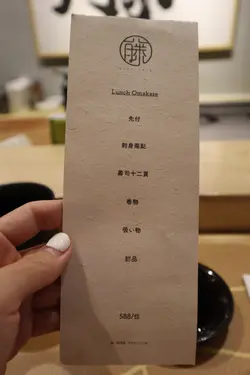 藤
Lunch Omakase
先付
刺身兩點
壽司十二貫
卷物
吸い物
甜品
588/位